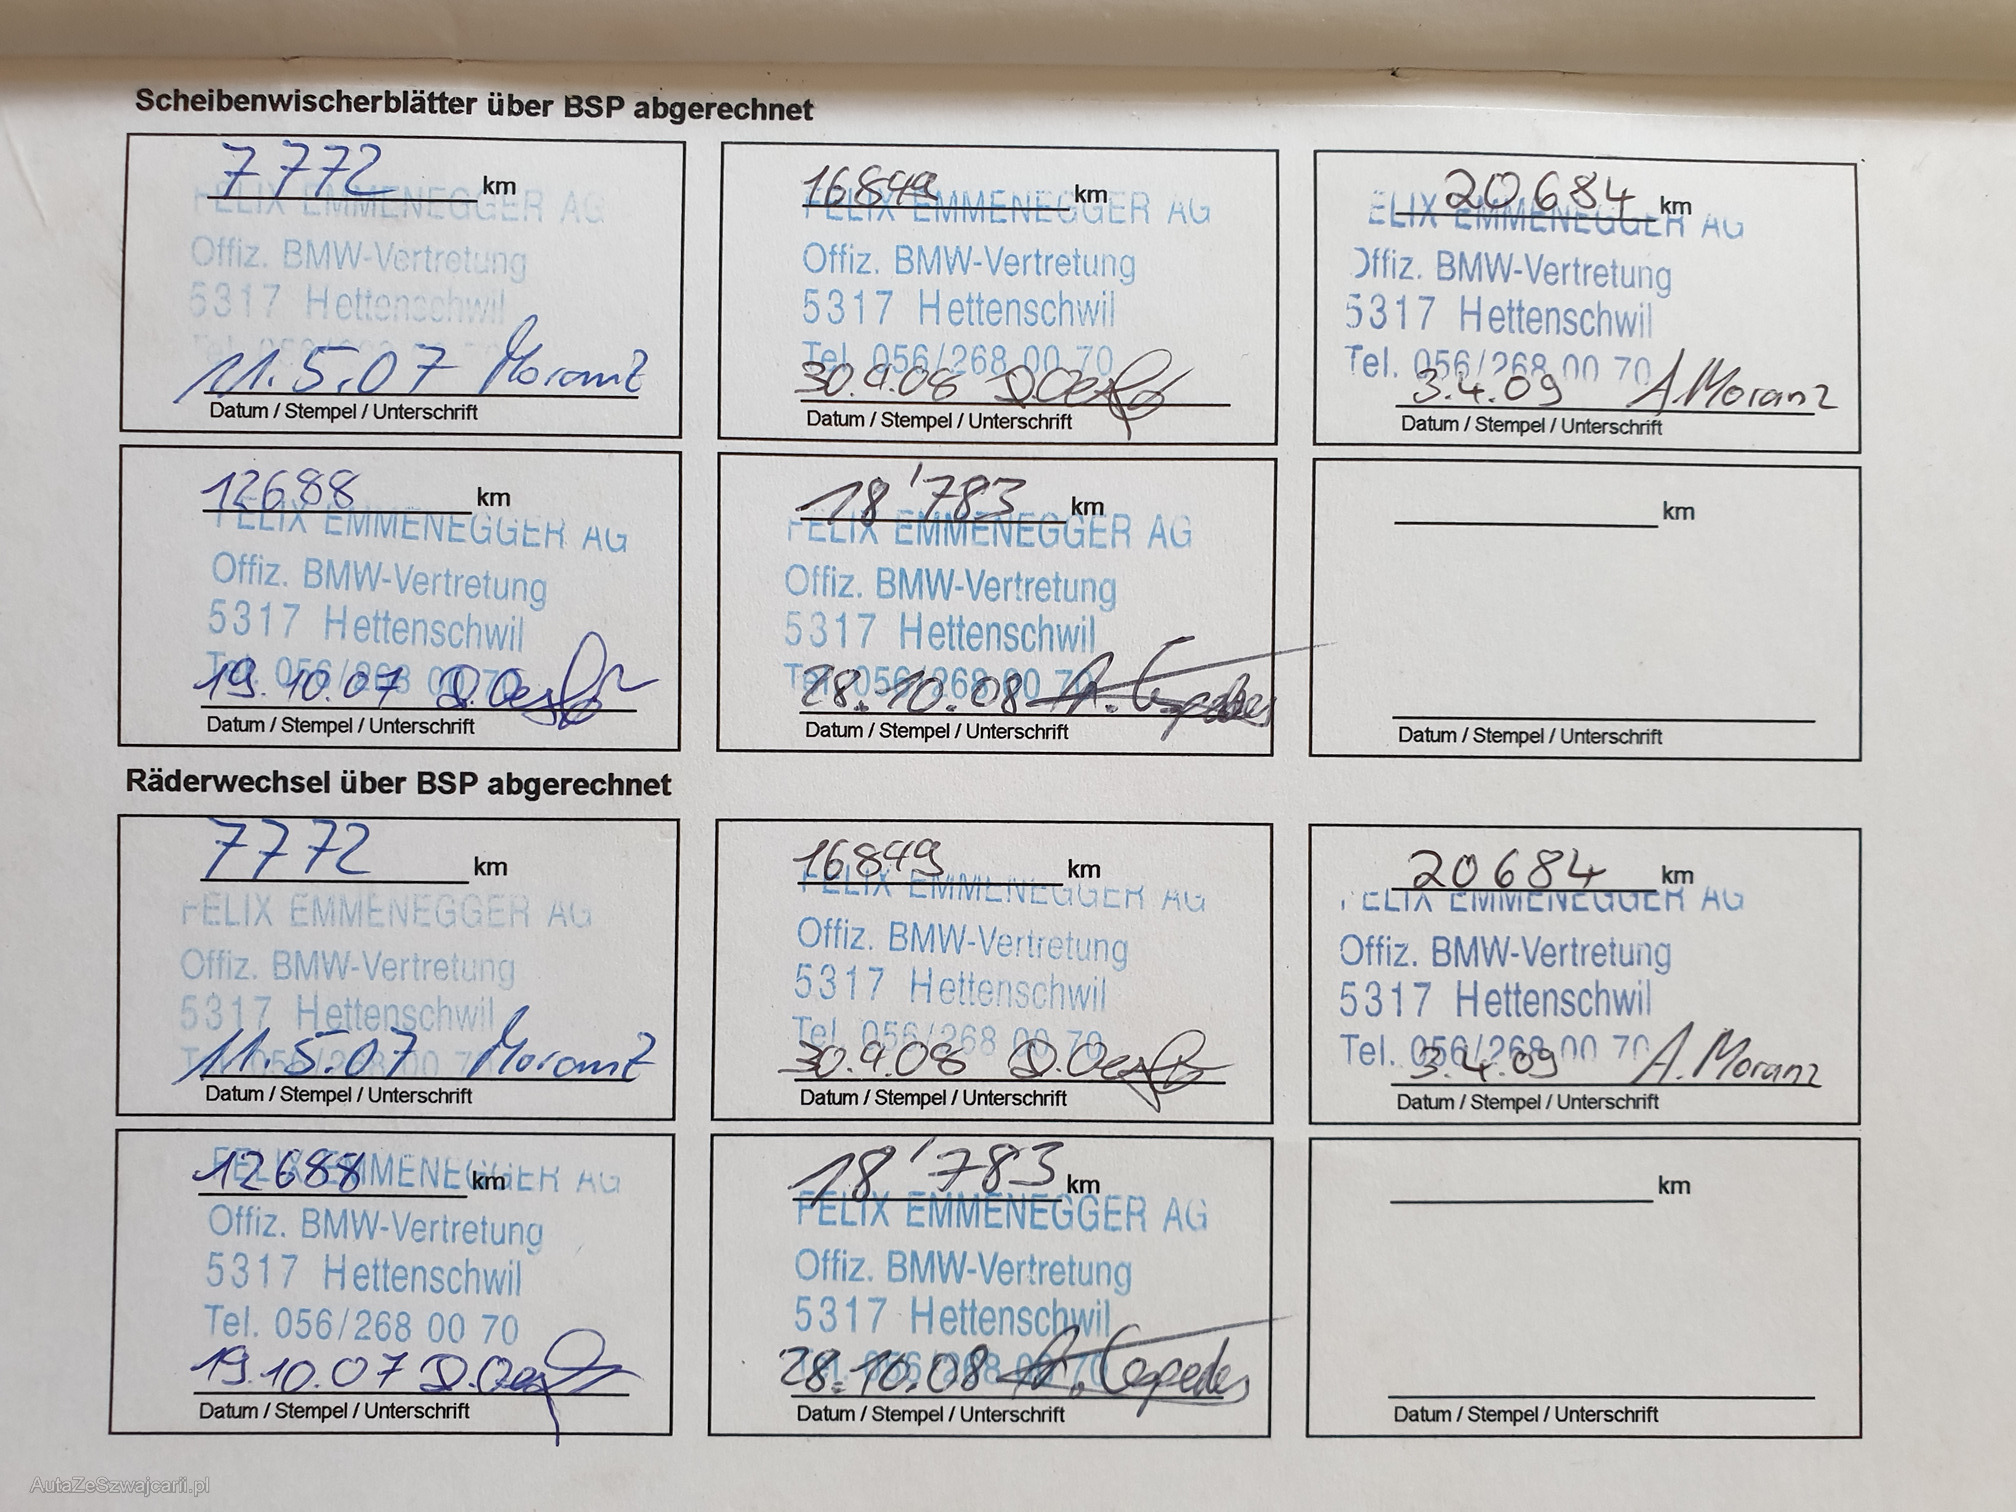 Scheibenwischerblätter über BSP abgerechnet
7772 km
FELIX EMMENEGGER AG
Offiz. BMW-Vertretung
5317 Hettenschwil
11.5.07 Moranz
Datum / Stempel / Unterschrift
16849 km
FELIX EMMENEGGER AG
Offiz. BMW-Vertretung
5317 Hettenschwil
Tel. 056/268 00 70
30.4.08
Datum / Stempel / Unterschrift
20684 km
ELIX EMMENEGGER AG
Offiz. BMW-Vertretung
5317 Hettenschwil
Tel. 056/268 00 70
3.4.09 A.Moranz
Datum / Stempel / Unterschrift
12688 km
FELIX EMMENEGGER AG
Offiz. BMW-Vertretung
5317 Hettenschwil
Tel. 056/268 00 70
19.10.07
Datum / Stempel / Unterschrift
18'783 km
FELIX EMMENEGGER AG
Offiz. BMW-Vertretung
5317 Hettenschwil
Tel. 056/268 00 70
28.10.08
Datum / Stempel / Unterschrift
km
Datum / Stempel / Unterschrift
Räderwechsel über BSP abgerechnet
7772 km
FELIX EMMENEGGER AG
Offiz. BMW-Vertretung
5317 Hettenschwil
Tel. 056/268 00 70
11.5.07 Moranz
Datum / Stempel / Unterschrift
16849 km
FELIX EMMENEGGER AG
Offiz. BMW-Vertretung
5317 Hettenschwil
Tel. 056/268 00 70
30.4.08
Datum / Stempel / Unterschrift
20684 km
FELIX EMMENEGGER AG
Offiz. BMW-Vertretung
5317 Hettenschwil
Tel. 056/268 00 70
3.4.09 A.Moranz
Datum / Stempel / Unterschrift
12688 km
FELIX EMMENEGGER AG
Offiz. BMW-Vertretung
5317 Hettenschwil
Tel. 056/268 00 70
19.10.07
Datum / Stempel / Unterschrift
18'783 km
FELIX EMMENEGGER AG
Offiz. BMW-Vertretung
5317 Hettenschwil
Tel. 056/268 00 70
28.10.08
Datum / Stempel / Unterschrift
km
Datum / Stempel / Unterschrift
AutaZeSzwajcarii.pl